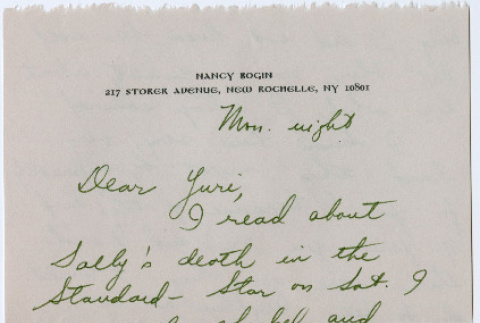 NANCY BOGIN
217 STORER AVENUE, NEW ROCHELLE, NY 10801
Mon. night
Dear Yuri,
I read about
Sally's death in the
Standard-Star on Sat. I
and